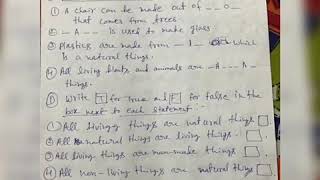 ① A chair can be made out of _ o o _
that comes from trees.
② _ A _ _ _ is used to make glass.
③ Plastics are made from _ I _ which
is a natural things.
④ All living plants and animals are _ A _ _ A _
things.
D) Write T for True and F for false in the
box next to each statement:
① All livingy things are natural things
② All natural things are living things.
③ All living things are man-made things
④ All non-living things are natural things